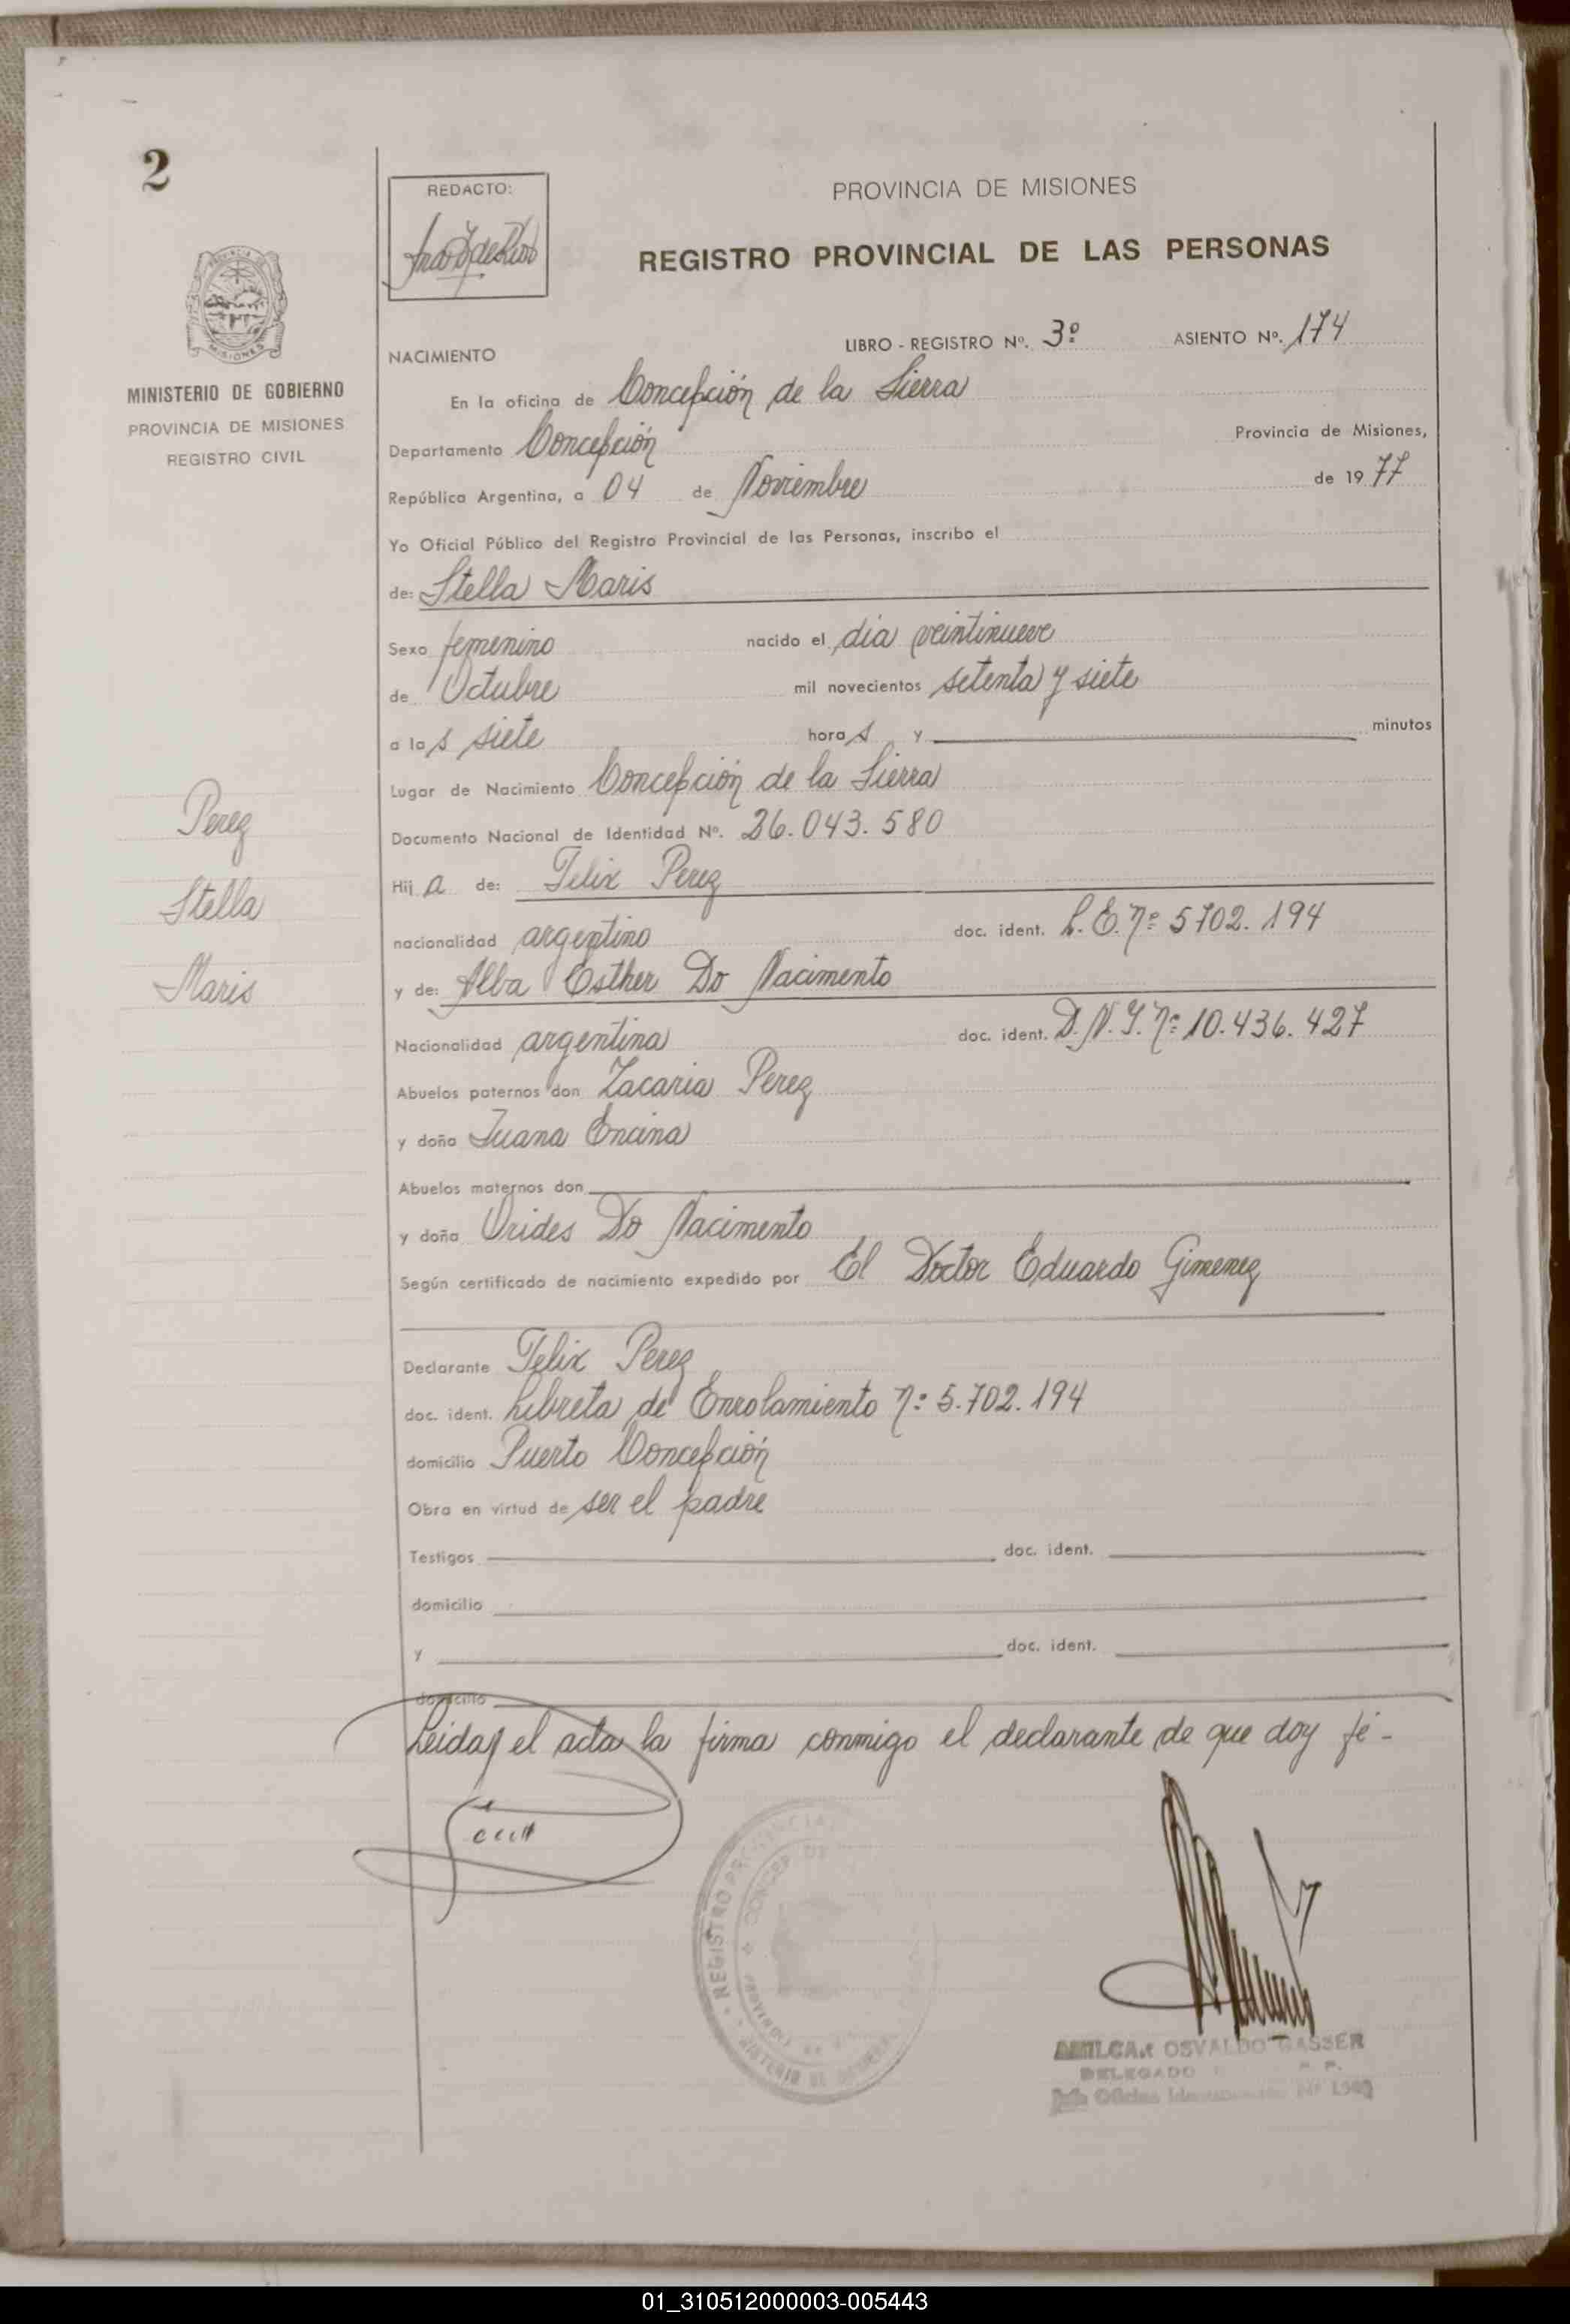 2
REDACTO:
PROVINCIA DE MISIONES
REGISTRO PROVINCIAL DE LAS PERSONAS
MISIONES
MINISTERIO DE GOBIERNO
PROVINCIA DE MISIONES
REGISTRO CIVIL
NACIMIENTO
LIBRO - REGISTRO Nº. 3º ASIENTO Nº. 174
En la oficina de Concepción de la Sierra
Departamento Concepción Provincia de Misiones,
República Argentina, a 04 de Noviembre de 1977
Yo Oficial Público del Registro Provincial de las Personas, inscribo el
de: Stella Maris
Sexo femenino nacido el día veintinueve
de Octubre mil novecientos setenta y siete
a las siete horas y minutos
Lugar de Nacimiento Concepción de la Sierra
Documento Nacional de Identidad Nº. 26.043.580
Hija de: Felix Perez
nacionalidad argentino doc. ident. L.E. nº 5702.194
y de: Alba Esther Do Nacimento
Nacionalidad argentina doc. ident. D.N.I. nº 10.436.427
Abuelos paternos don Zacaria Perez
y doña Juana Encina
Abuelos maternos don
y doña Orides Do Nacimento
Según certificado de nacimiento expedido por El Doctor Eduardo Gimenez
Declarante Felix Perez
doc. ident. Libreta de Enrolamiento nº 5.702.194
domicilio Puerto Concepción
Obra en virtud de ser el padre
Testigos doc. ident.
domicilio
y doc. ident.
domicilio
Leida el acta la firma conmigo el declarante de que doy fé-
Perez
Stella
Maris
REGISTRO PROVINCIAL
AMILCAR OSVALDO GASSER
DELEGADO
01_310512000003-005443